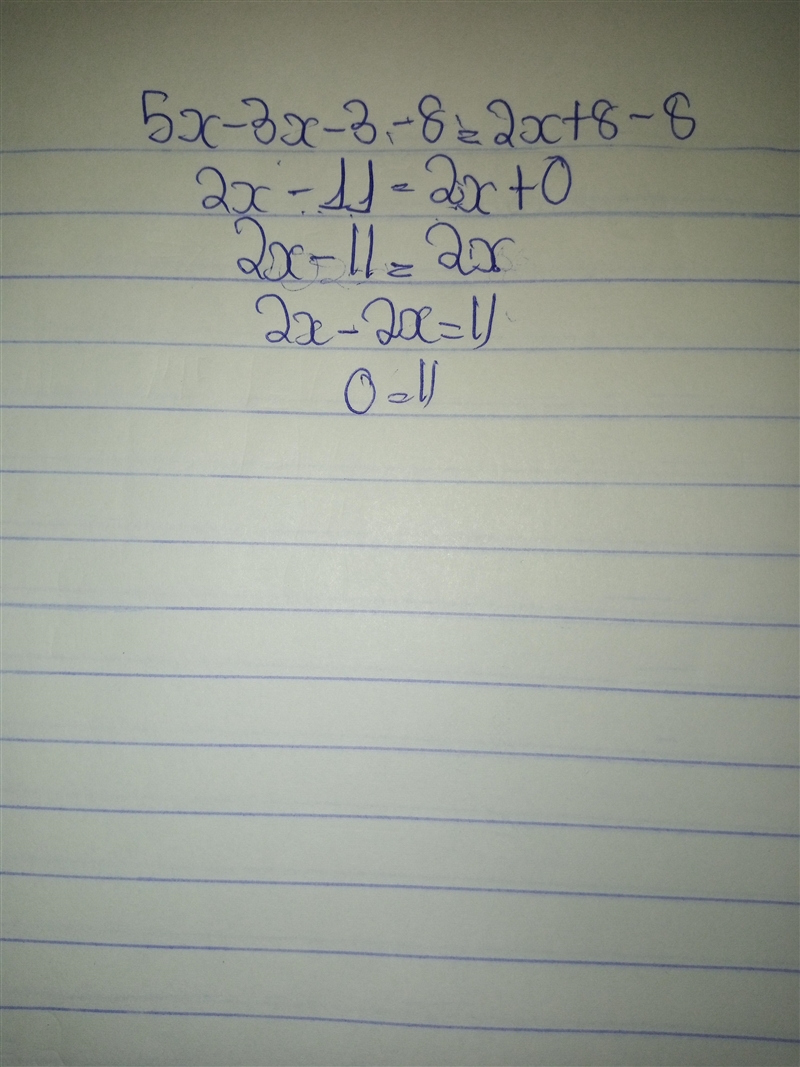 5x-3x-3-8=2x+8-8
2x-11=2x+0
2x-11=2x
2x-2x=11
0=11